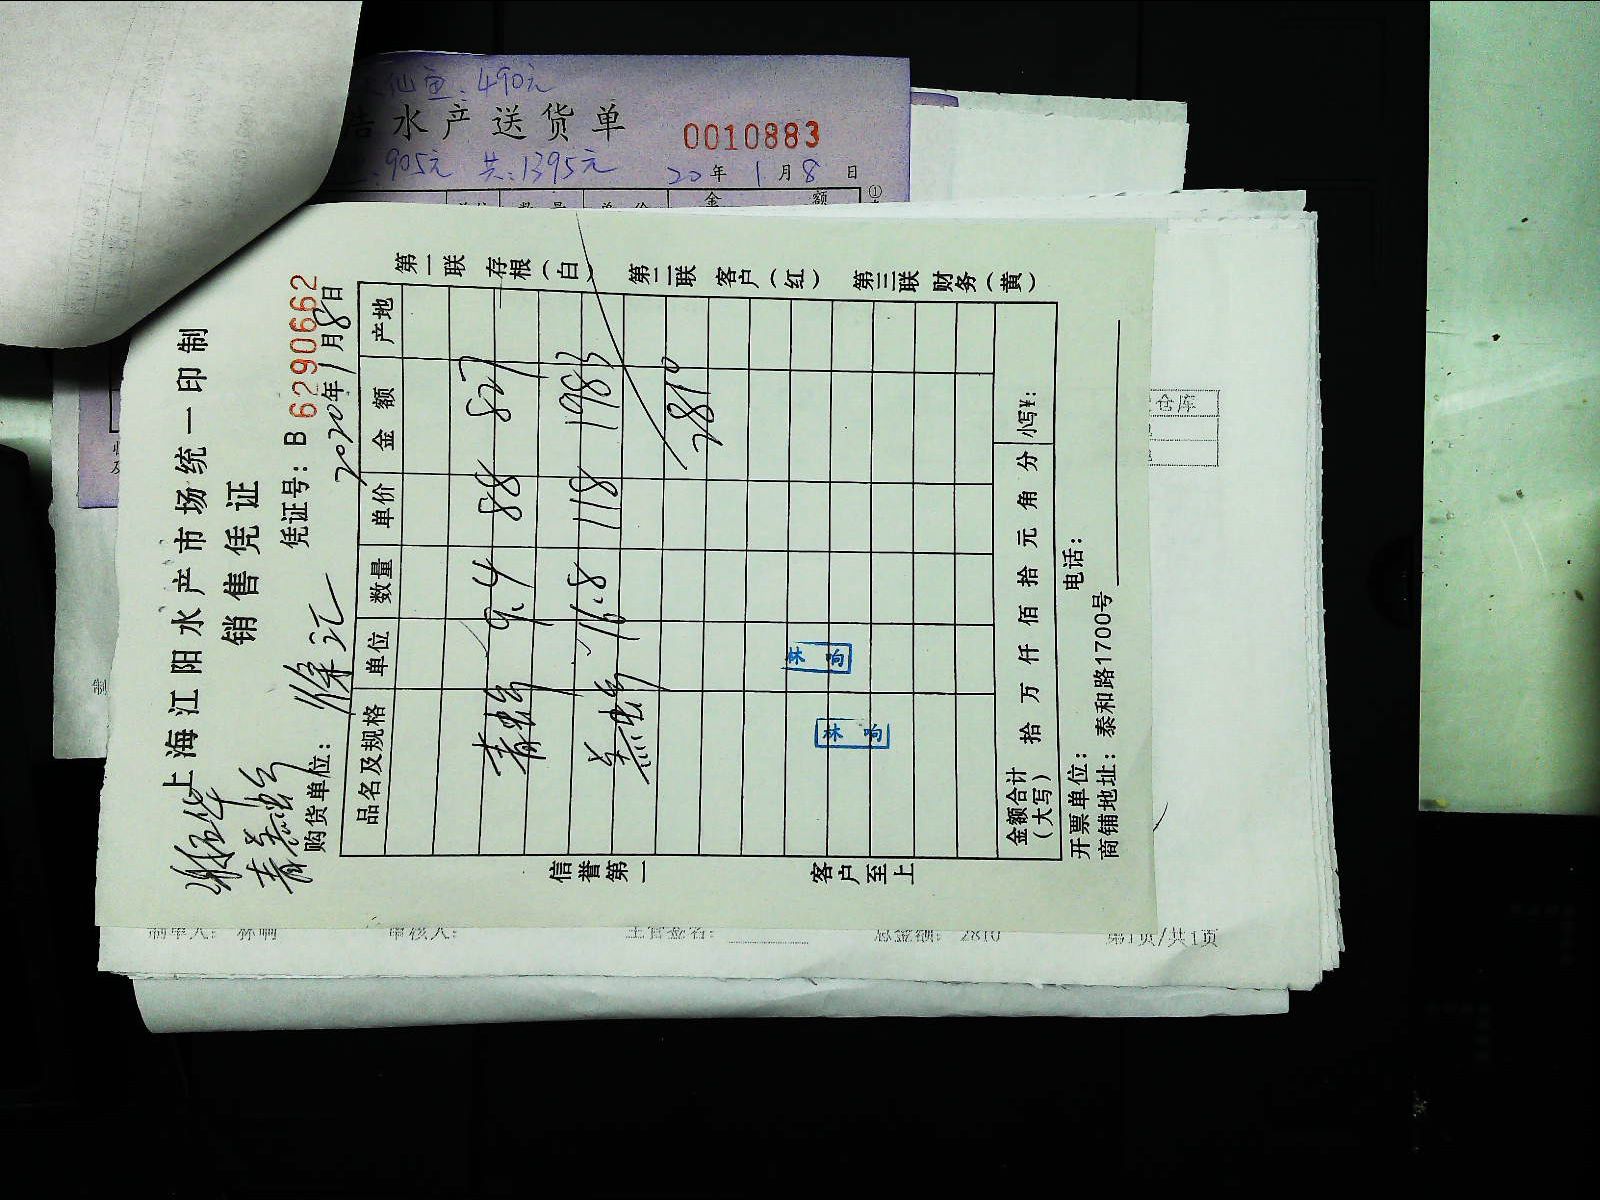 仙鱼:490元
水产送货单 0010883
905元 共:1395元 20年1月8日
金额
①
上海江阳水产市场统一印制
销售凭证
凭证号: B 6290662
购货单位: 徐汇 2020年1月8日
品名及规格 单位 数量 单价 金额 产地
9.4 88 827
16.8 118 1983
2810
林响
林响
金额合计(大写) 拾 万 仟 佰 拾 元 角 分 小写¥:
开票单位: 电话:
商铺地址: 泰和路1700号
第一联 存根(白) 第二联 客户(红) 第三联 财务(黄)
信誉第一 客户至上
仓库
制单人: 林响 审核人: 主管签名: 总金额: 2810 第1页/共1页